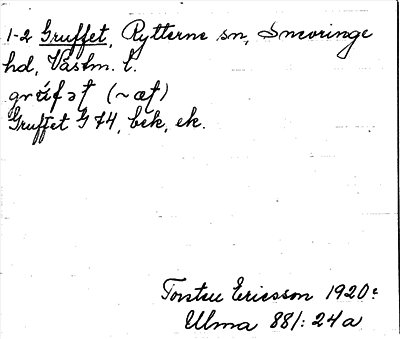 1-2 Gruffet, Rytterne sn, Snevringe
hd, Västm. l.
(~æt)
Gruffet G 74, bek, ek.
Torsten Ericsson 1920:
Ulma 881:24a